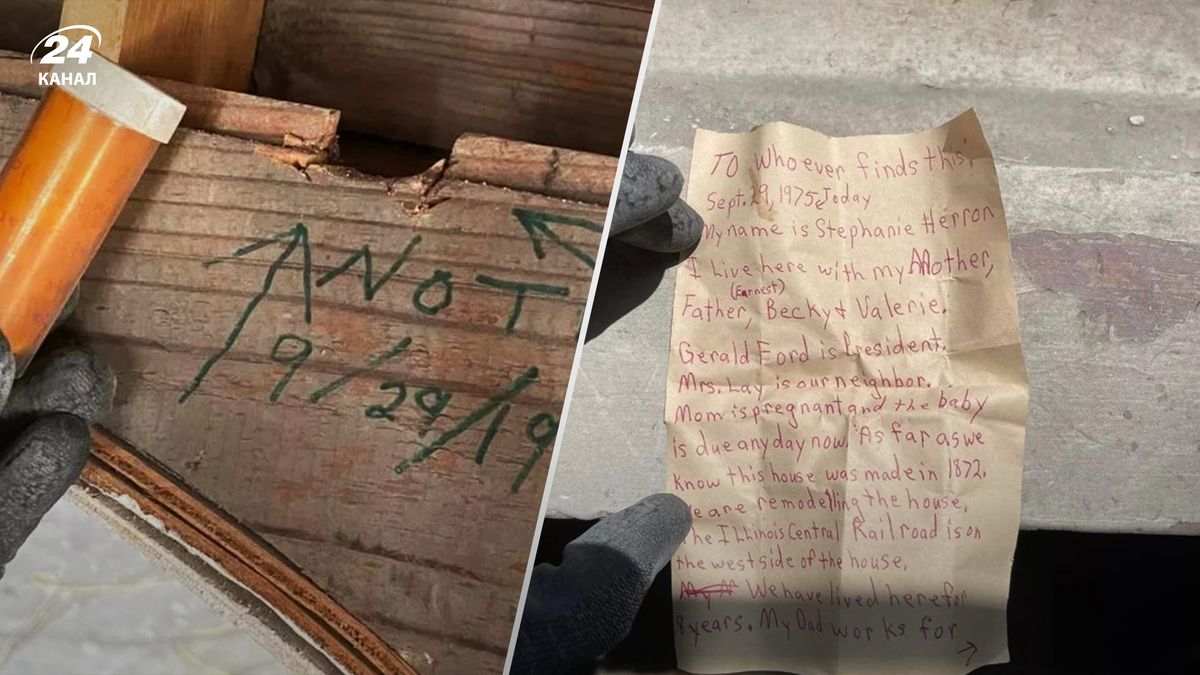 24
КАНАЛ
NOT
9/29/19
TO Whoever finds this,
Sept. 29, 1975, Today
My name is Stephanie Herron
I Live here with my Mother,
(Earnest)
Father, Becky & Valerie.
Gerald Ford is President.
Mrs. Lay is our neighbor.
Mom is pregnant and the baby
is due any day now. As far as we
know this house was made in 1872.
We are remodelling the house.
The Illinois Central Railroad is on
the west side of the house.
We have lived here for
8 years. My Dad works for